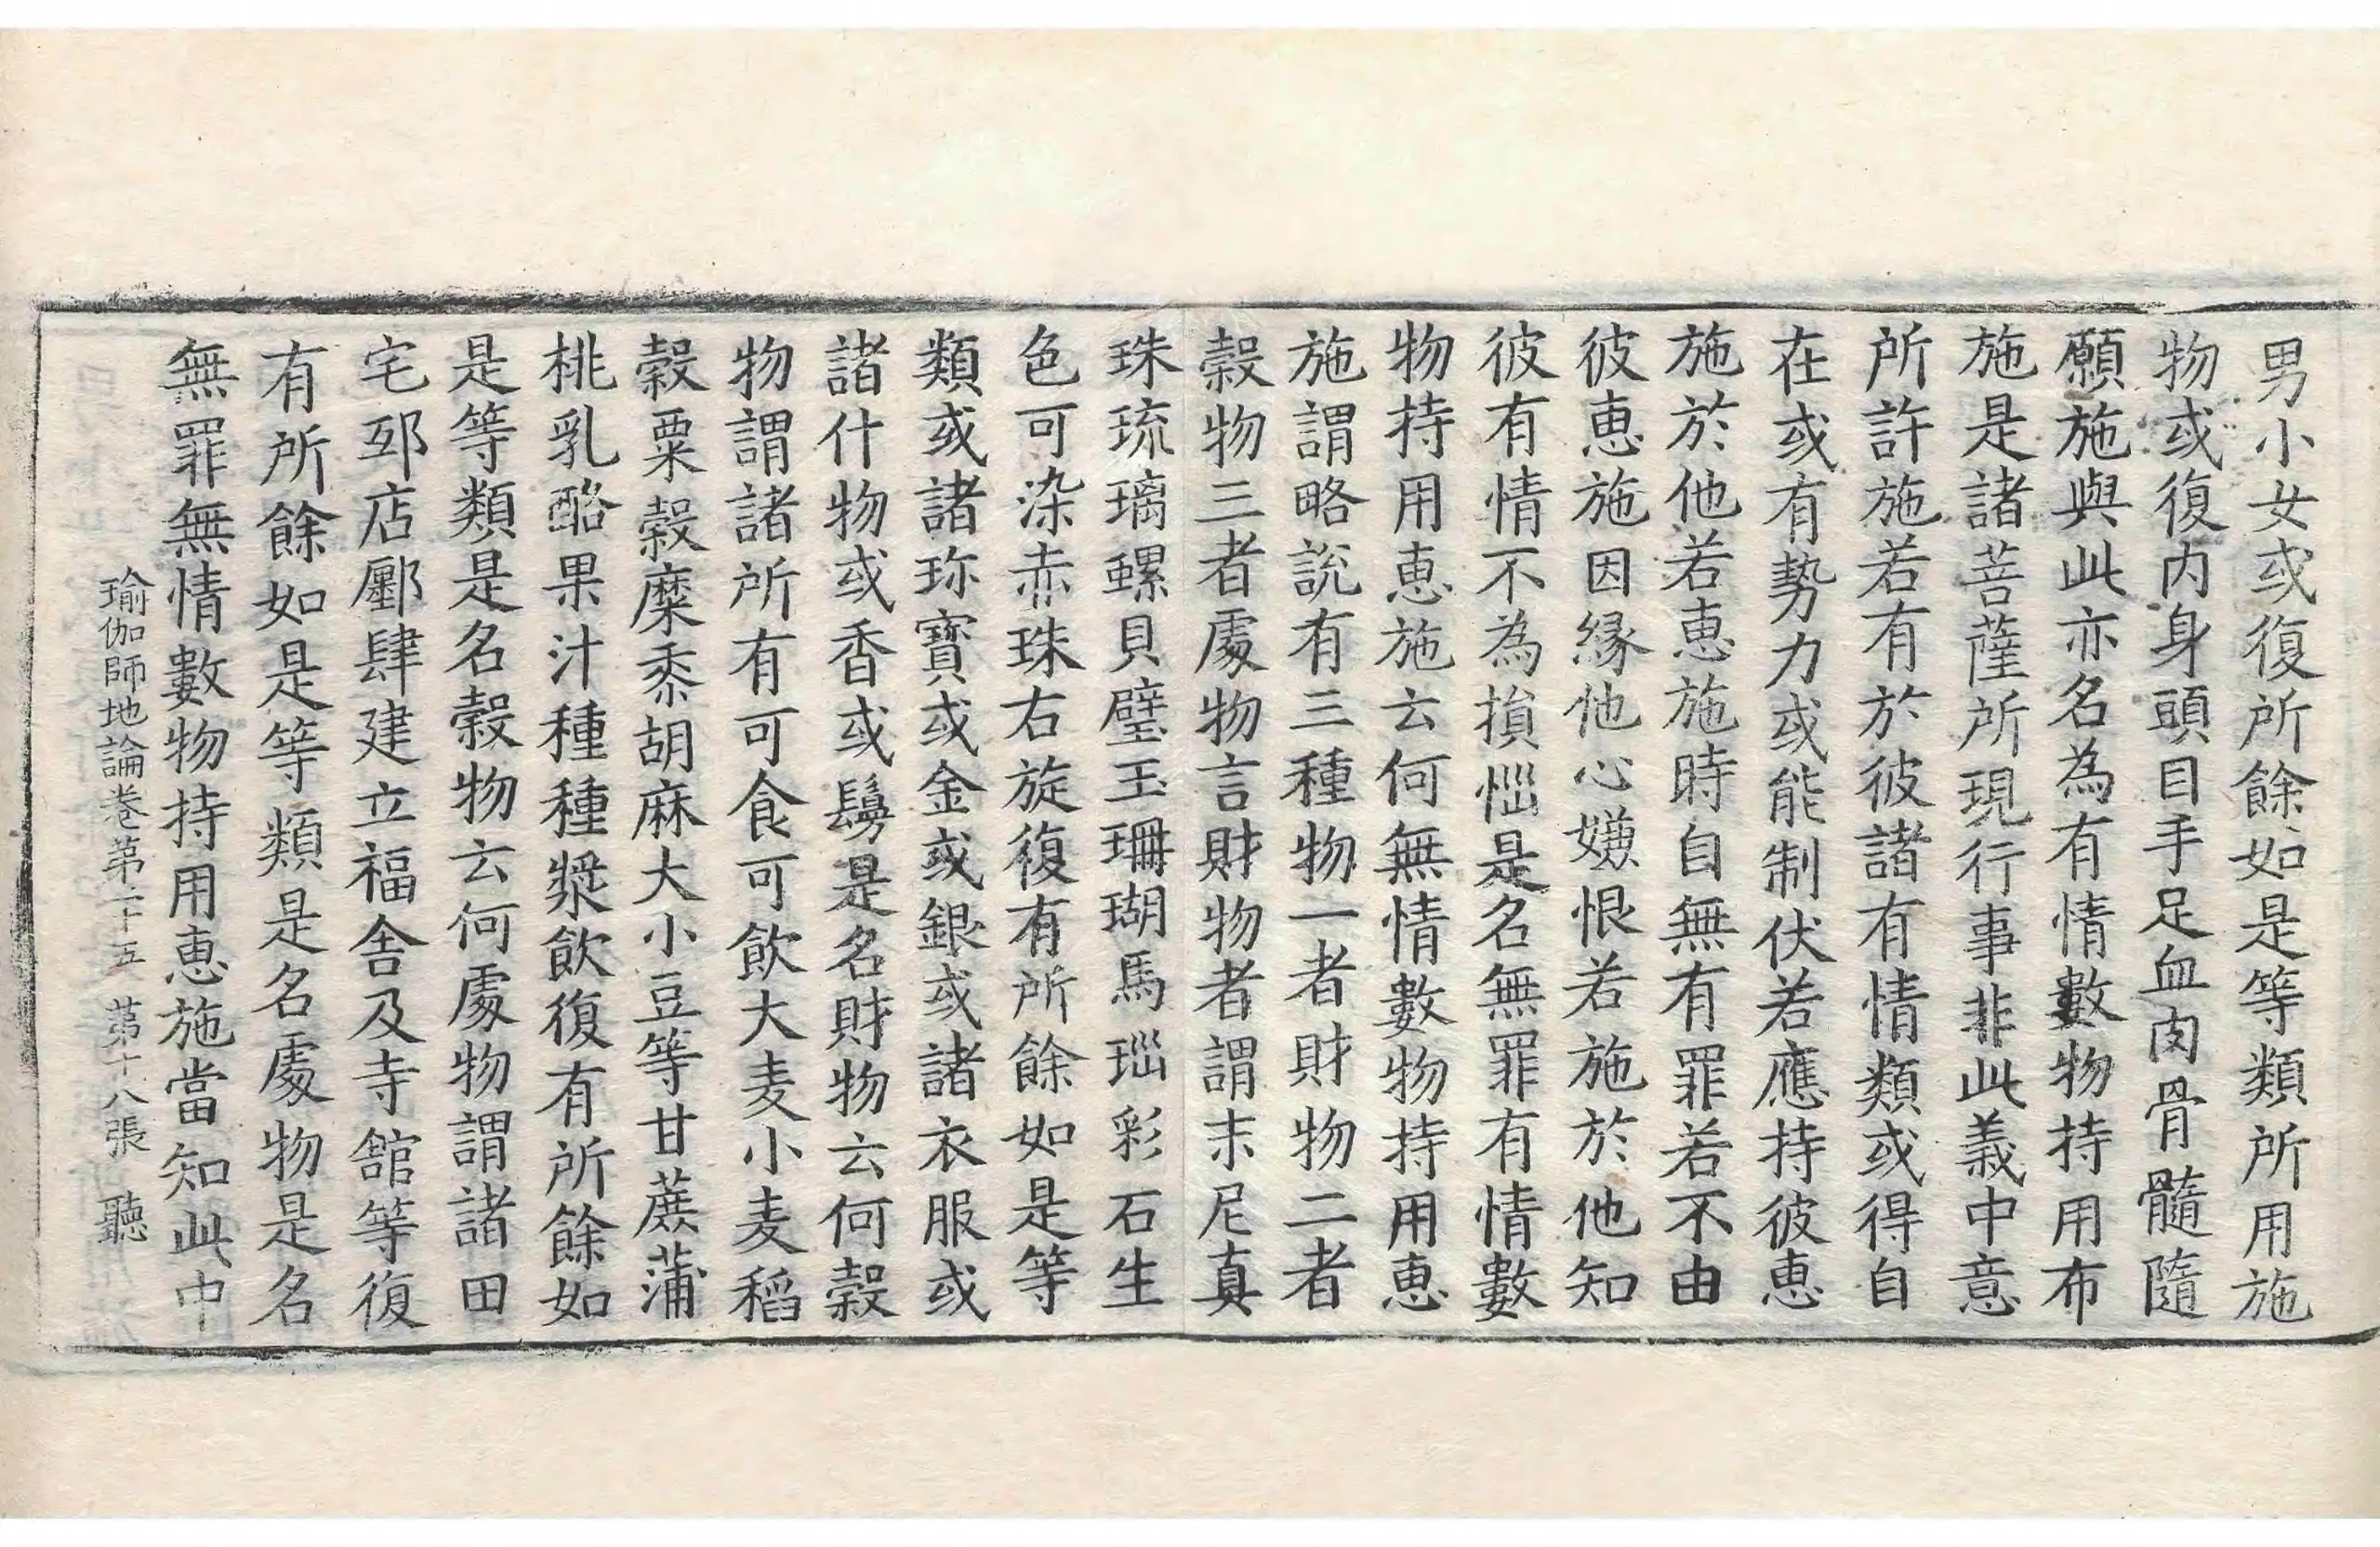 男小女或復所餘如是等類所用施
物或復内身頭目手足血肉骨髓隨
願施與此亦名為有情數物持用布
施是諸菩薩所現行事非此義中意
所許施若有於彼諸有情類或得自
在或有勢力或能制伏若應持彼恵
施於他若恵施時自無有罪若不由
彼恵施因縁他心嫌恨若施於他知
彼有情不為損惱是名無罪有情數
物持用恵施云何無情數物持用恵
施謂略說有三種物一者財物二者
穀物三者處物言財物者謂末尼真
珠琉璃螺貝璧玉珊瑚馬瑙彩石生
色可染赤珠右旋復有所餘如是等
類或諸珎寶或金或銀或諸衣服或
諸什物或香或鬘是名財物云何穀
物謂諸所有可食可飲大麦小麦稻
穀粟穀穈黍胡麻大小豆等甘蔗蒲
桃乳酪果汁種種漿飲復有所餘如
是等類是名穀物云何處物謂諸田
宅邸店鄽肆建立福舎及寺館等復
有所餘如是等類是名處物是名
無罪無情數物持用恵施當知此中
瑜伽師地論卷第二十五　第十八張　聽